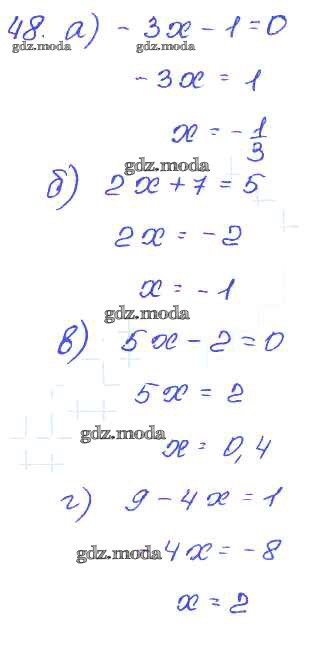 48. а) - 3x - 1 = 0
gdz.moda gdz.moda
- 3x = 1
x = - 1/3
gdz.moda
б) 2x + 7 = 5
2x = - 2
x = - 1
gdz.moda
в) 5x - 2 = 0
5x = 2
gdz.moda
x = 0,4
г) 9 - 4x = 1
gdz.moda
- 4x = - 8
x = 2